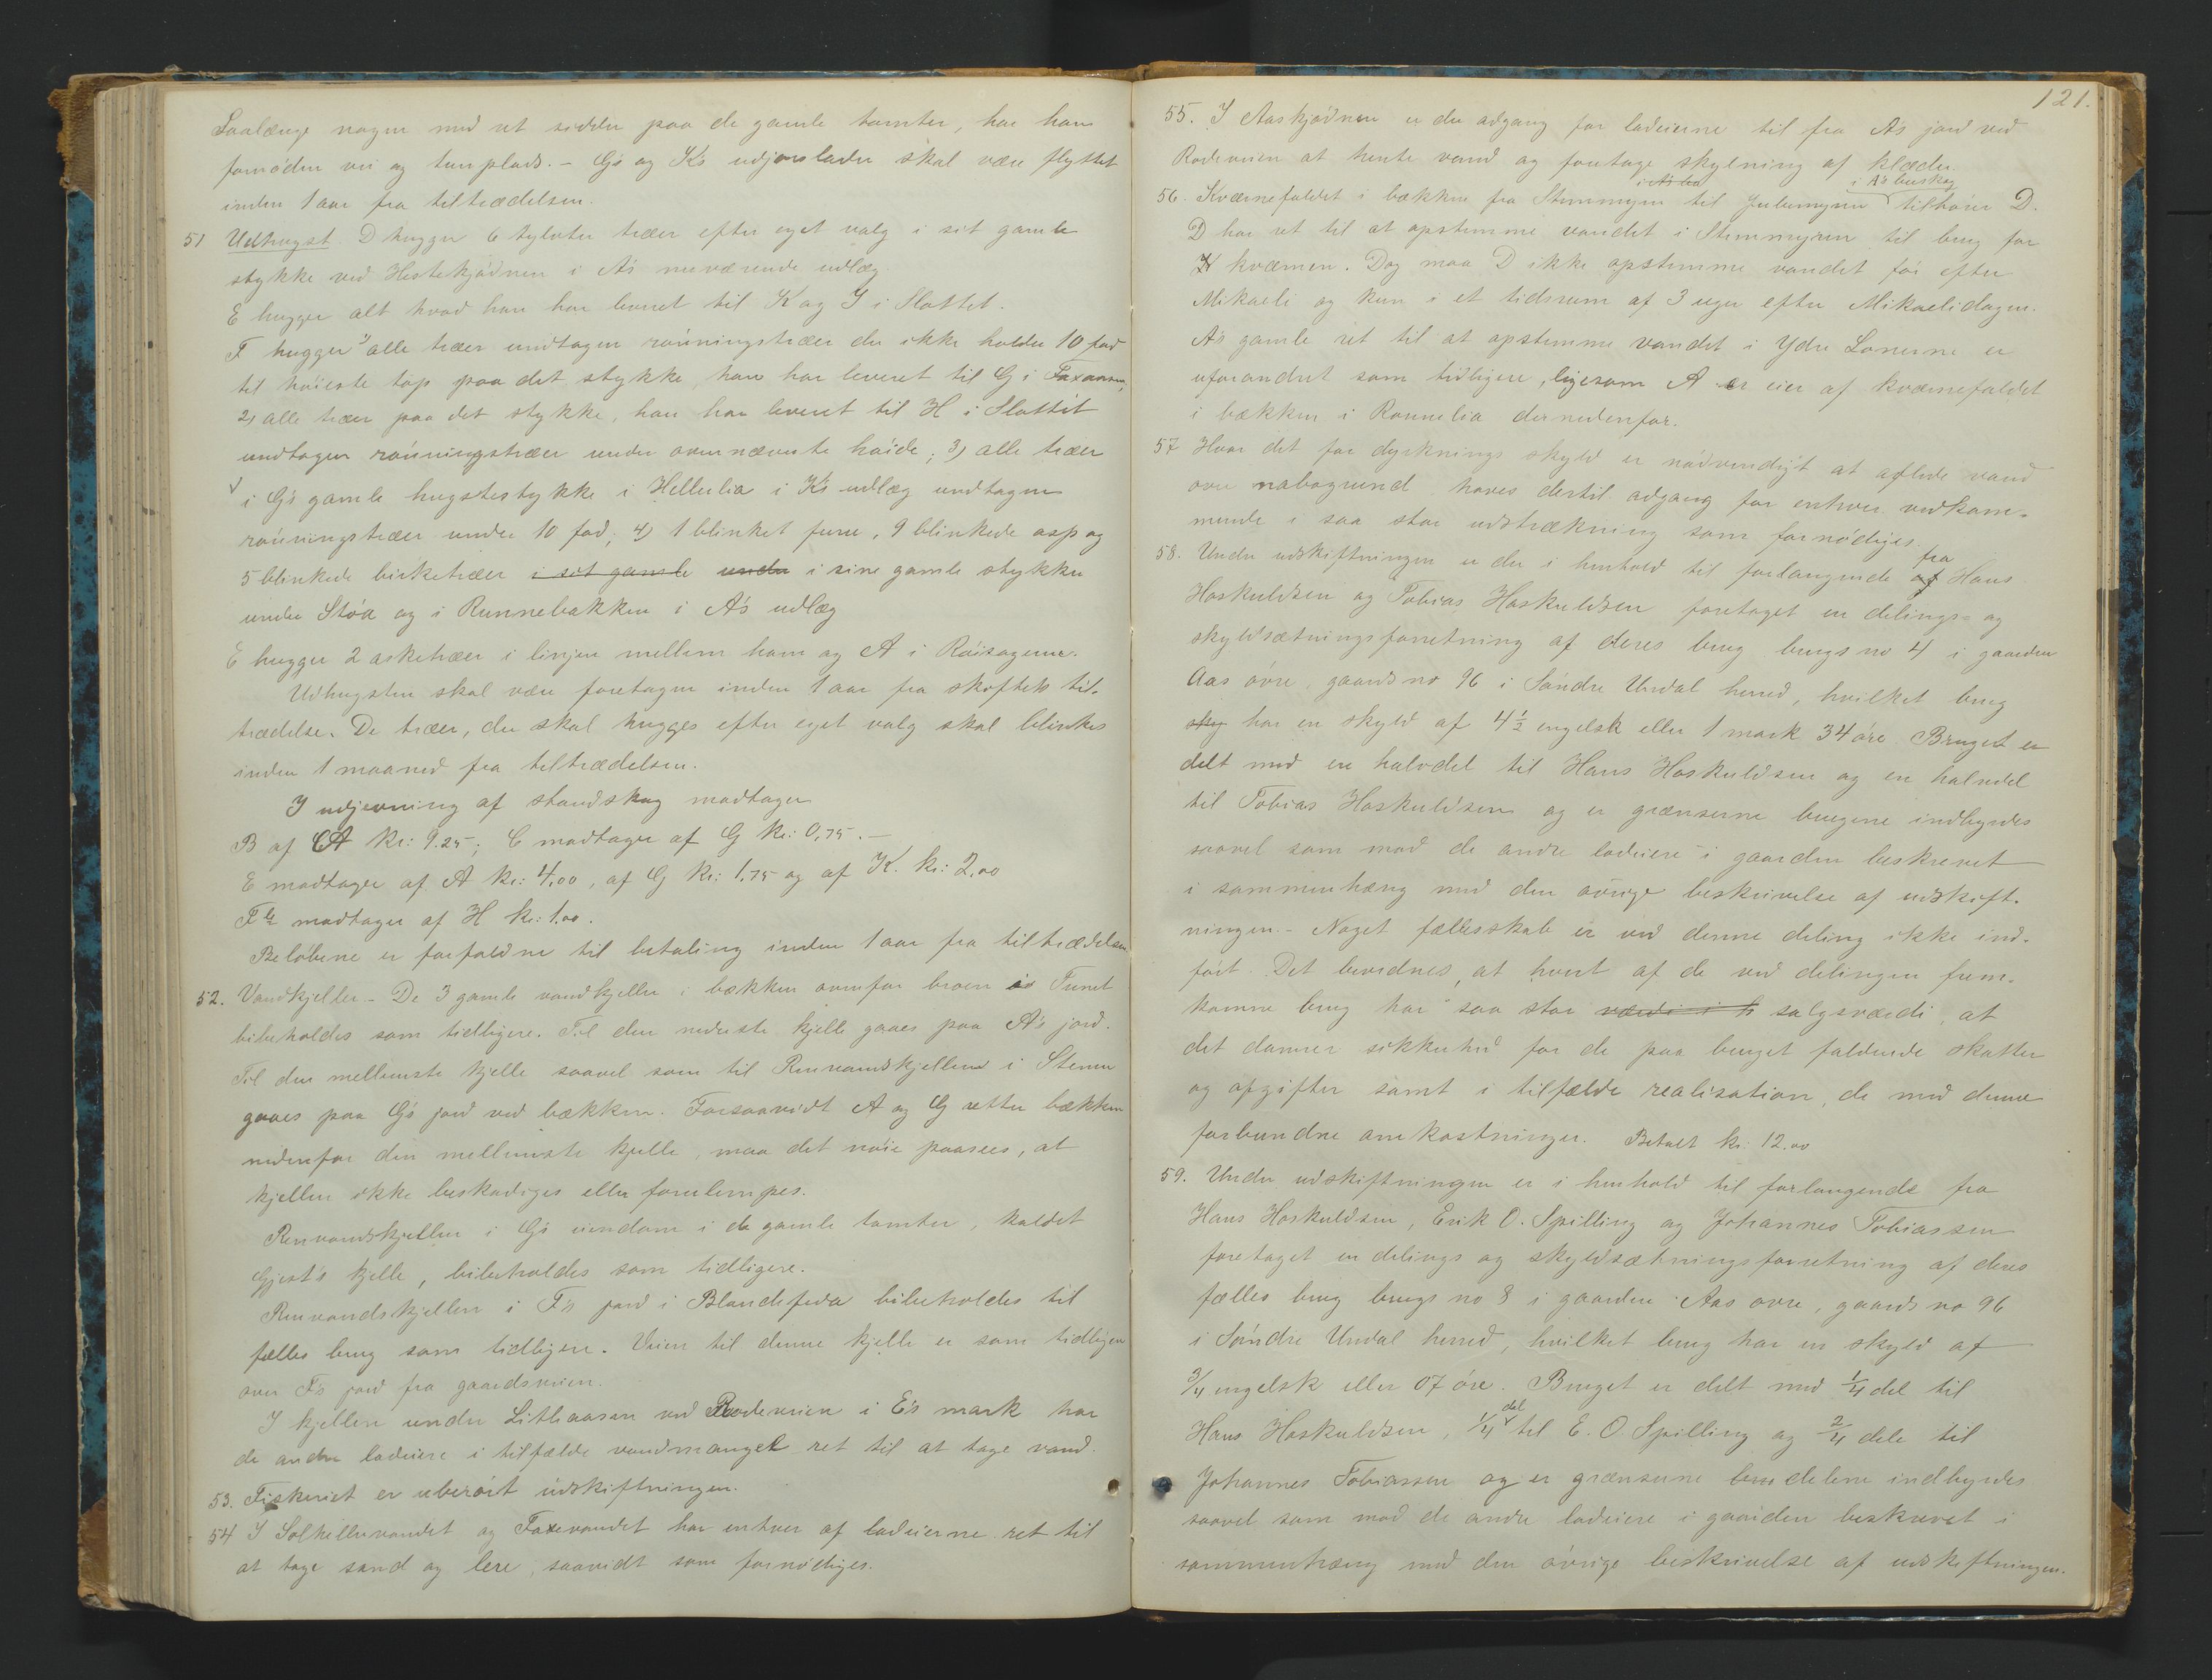 Saalænge nogen med ret sidder paa de gamle tomter, har han
fornöden vei og tunplads. - G's og K's udjordslader skal være flyttet
inden 1 aar fra tiltrædelsen.
51 Udhugst. D hugger 6 tylvter træer efter eget valg i sit gamle
stykke ved Hestekjödnen i A's nuværende udlæg.
E hugger alt hvad han har leveret til K og I i Slottet.
F hugger 1) alle træer undtagen rönningstræer der ikke holder 10 fod
til höieste top paa det stykke, han har leveret til G i Faxaasen;
2) alle træer paa det stykke, han har leveret til H i Slottet
undtagen rönningstræer under overnævnte höide; 3) alle træer
i G's gamle hugstestykke i Hellerlia i K's udlæg undtagen
rönningstræer under 10 fod; 4) 1 blinket furu, 9 blinkede asp og
5 blinkede birketræer i sit gamle under i sine gamle stykker
under Stöa og i Runnebakken i A's udlæg
E hugger 2 asketræer i linjen mellem ham og A i Röisagerne.
Udhugsten skal være foretagen inden 1 aar fra skiftets til-
trædelse. De træer, der skal hugges efter eget valg skal blinkes
inden 1 maaned fra tiltrædelsen.
I udjevning af standskog modtager
B af A kr: 9.25; C modtager af G kr: 0,75.-
E modtager af A kr: 4,00, af G kr: 1,75 og af K. kr: 2,00
F modtager af H kr: 1.00.
Belöbene er forfaldne til betaling inden 1 aar fra tiltrædelsen
52. Vandkjelder - De 3 gamle vandkjelder i bækken ovenfor broen i Tunet
bibeholdes som tidligere. Til den nederste kjelle gaaes paa A's jord.
Til den mellemste kjelle saavel som til Renvandskjellen i Stemm
gaaes paa G's jord ved bækken. Forsaavidt A og G retter bækken
nedenfor den mellemste kjelle, maa det nöie paasees, at
kjellen ikke beskadiges eller forulempes.
Renvandskjellen i G's eiendom i de gamle tomter, kaldet
Gjest's kjelle, bibeholdes som tidligere.
Renvandskjellen i F's jord i Blandefeda bibeholdes til
fælles brug som tidligere. Veien til denne kjelle er som tidligere
over F's jord fra gaardsveien.
I kjellen under Litlaasen ved Rodeveien i E's mark har
de andre lodeiere i tilfælde vandmangel ret til at tage vand.
53. Fiskeriet er uberört udskiftningen.
54 I Solhellervandet og Faxevandet har enhver af lodeierne ret til
at tage sand og lere, saavidt som fornödiges.
121.
55. I Aaskjödnen er der adgang for lodeierne til fra A's jord ved
Rodeveien at hente vand og foretage skylning af klæder.
i A's bu i A's buskog
56. Kværnefaldet i bækken fra Stemmyren til Julemyren tilhörer D.
D har ret til at opstemme vandet i Stemmyren til brug for
kværnen. Dog maa D ikke opstemme vandet för efter
Mikaeli og kun i et tidsrum af 3 uger efter Mikaelidagen.
A's gamle ret til at opstemme vandet i Ydre Lonerne er
uforandret som tidligere, ligesom A er eier af kværnefaldet
i bækken i Ronnelia dernedenfor.
57 Hvor det for dyrknings skyld er nödvendigt at aflede vand
over nabogrund haves dertil adgang for enhver vedkom-
mende i saa stor udstrækning som fornödiges.
58. Under udskiftningen er der i henhold til forlangende af fra Hans
Hoskuldsen og Tobias Hoskuldsen foretaget en delings- og
skyldsætningsforretning af deres brug brugs no 4 i gaarden
Aas övre, gaards no 96 i Söndre Undal herred, hvilket brug
sky har en skyld af 4 1/2 engelsk eller 1 mark 34 öre. Bruget er
delt med en halvdel til Hans Hoskuldsen og en halvdel
til Tobias Hoskuldsen og er grænserne brugene indbyrdes
saavel som mod de andre lodeiere i gaarden beskrevet
i sammenhæng med den övrige beskrivelse af udskift-
ningen. - Noget fællesskab er ved denne deling ikke ind-
fört. Det bevidnes, at hvert af de ved delingen frem-
komne brug har saa stor værdi i h salgsværdi, at
det danner sikkerhed for de paa bruget faldende skatter
og afgifter samt i tilfælde realisation, de med denne
forbundne omkostninger. Betalt kr. 12.00
59. Under udskiftningen er i henhold til forlangende fra
Hans Hoskuldsen, Erik O. Spilling og Johannes Tobiassen
foretaget en delings og skyldsætningsforretning af deres
fælles brug brugs no 8 i gaarden Aas övre, gaards no 96
i Söndre Undal herred, hvilket brug har en skyld af
3/4 engelsk eller 07 öre. Bruget er delt med 1/4 del til
Hans Hoskuldsen, 1/4 del til E. O. Spilling og 2/4 dele til
Johannes Tobiassen og er grænserne bru delene indbyrdes
saavel som mod de andre lodeiere i gaarden beskrevet i
sammenhæng med den övrige beskrivelse af udskiftningen.